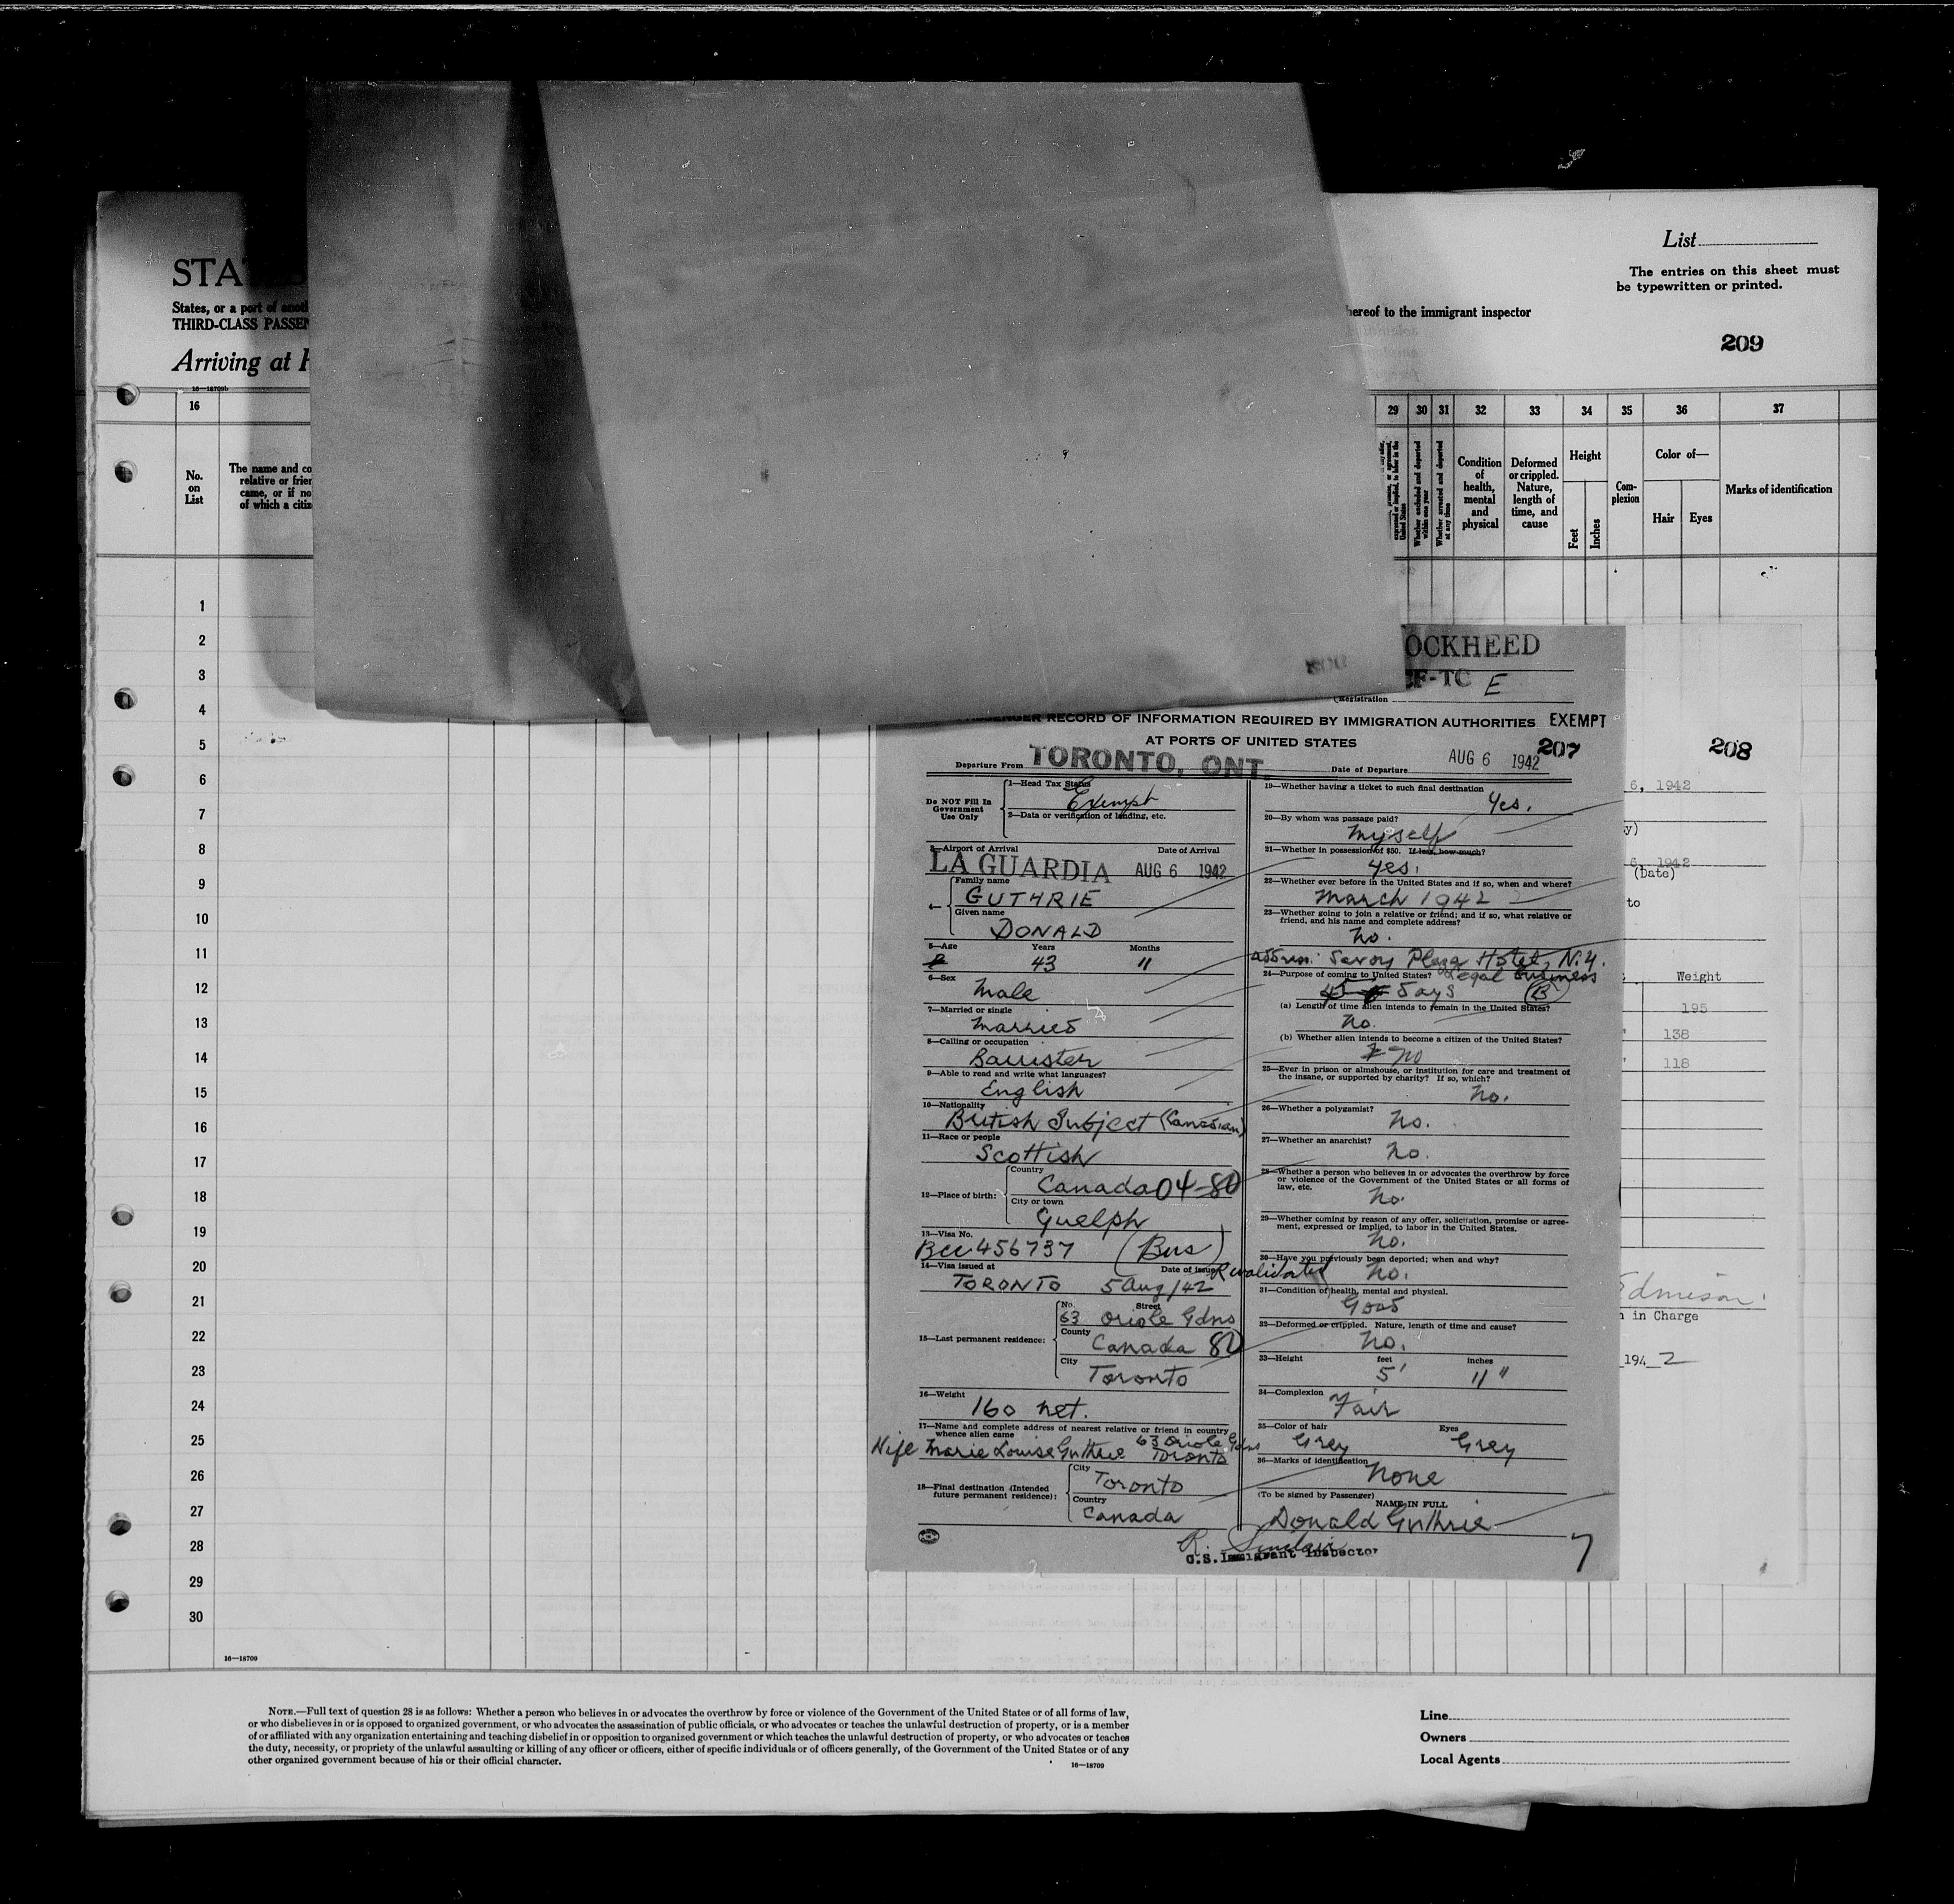 List
The entries on this sheet must
be typewritten or printed.
STATES
States, or a port of anoth
THIRD-CLASS PASSEN
hereof to the immigrant inspector
209
Arriving at
16—18709b
16
29 30 31 32 33 34 35 36 37
No.
on
List
The name and co
relative or frien
came, or if no
of which a citiz
expressed or implied, to labor in the United States
Whether excluded and deported within one year
Whether arrested and deported at any time
Condition
of
health,
mental
and
physical
Deformed
or crippled.
Nature,
length of
time, and
cause
Height
Feet
Inches
Com-
plexion
Color of—
Hair
Eyes
Marks of identification
1
2
3
4
5
6
7
8
9
10
11
12
13
14
15
16
17
18
19
20
21
22
23
24
25
26
27
28
29
30
16—18709
OCKHEED
CF-TC E
(Registration
PASSENGER RECORD OF INFORMATION REQUIRED BY IMMIGRATION AUTHORITIES EXEMPT
AT PORTS OF UNITED STATES
207
Departure From TORONTO, ONT. Date of Departure AUG 6 1942
Do NOT Fill In
Government
Use Only
1—Head Tax Status
Exempt
2—Data or verification of landing, etc.
3—Airport of Arrival Date of Arrival
LA GUARDIA AUG 6 1942
4—
Family name
GUTHRIE
Given name
DONALD
5—Age Years Months
43 11
6—Sex
Male
7—Married or single
Married
8—Calling or occupation
Barrister
9—Able to read and write what languages?
English
10—Nationality
British Subject (Canadian)
11—Race or people
Scottish
12—Place of birth:
Country
Canada 04-80
City or town
Guelph
13—Visa No.
BCC 456737 (Bus)
14—Visa issued at Date of issue Revalidated
TORONTO 5 Aug/42
15—Last permanent residence:
No. Street
63 Oriole Gdns
County
Canada 80
City
Toronto
16—Weight
160 net.
17—Name and complete address of nearest relative or friend in country
whence alien came
Wife Marie Louise Guthrie 63 Oriole Gdns
Toronto
18—Final destination (Intended
future permanent residence):
City
Toronto
Country
Canada
19—Whether having a ticket to such final destination
Yes.
20—By whom was passage paid?
Myself
21—Whether in possession of $50. If less, how much?
Yes.
22—Whether ever before in the United States and if so, when and where?
March 1942
23—Whether going to join a relative or friend; and if so, what relative or
friend, and his name and complete address?
No.
address: Savoy Plaza Hotel, N.Y.
24—Purpose of coming to United States? Legal business
45 days B
(a) Length of time alien intends to remain in the United States?
No.
(b) Whether alien intends to become a citizen of the United States?
no
25—Ever in prison or almshouse, or institution for care and treatment of
the insane, or supported by charity? If so, which?
No.
26—Whether a polygamist?
No.
27—Whether an anarchist?
No.
28—Whether a person who believes in or advocates the overthrow by force
or violence of the Government of the United States or all forms of
law, etc.
No.
29—Whether coming by reason of any offer, solicitation, promise or agree-
ment, expressed or implied, to labor in the United States.
No.
30—Have you previously been deported; when and why?
No.
31—Condition of health, mental and physical.
Good
32—Deformed or crippled. Nature, length of time and cause?
No.
33—Height feet inches
5' 11"
34—Complexion
Fair
35—Color of hair Eyes
Grey Grey
36—Marks of identification
None
(To be signed by Passenger)
NAME IN FULL
Donald Guthrie
R. Sinclair
U.S. Immigrant Inspector
7
208
6, 1942
y)
6, 1942
(Date)
to
Weight
195
138
118
Edmison
n in Charge
194 2
NOTE.—Full text of question 28 is as follows: Whether a person who believes in or advocates the overthrow by force or violence of the Government of the United States or of all forms of law,
or who disbelieves in or is opposed to organized government, or who advocates the assassination of public officials, or who advocates or teaches the unlawful destruction of property, or is a member
of or affiliated with any organization entertaining and teaching disbelief in or opposition to organized government or which teaches the unlawful destruction of property, or who advocates or teaches
the duty, necessity, or propriety of the unlawful assaulting or killing of any officer or officers, either of specific individuals or of officers generally, of the Government of the United States or of any
other organized government because of his or their official character.
16—18709
Line
Owners
Local Agents